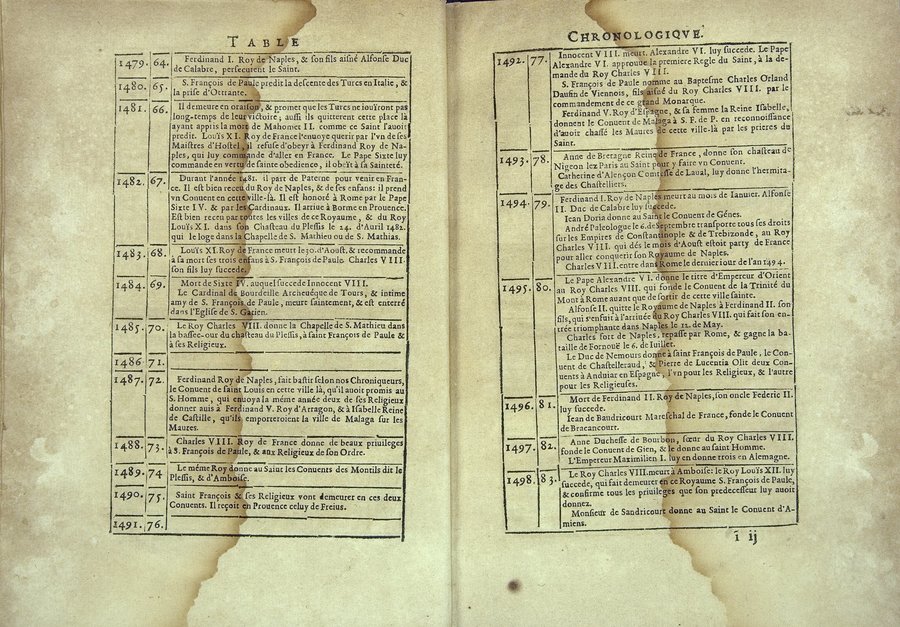 TABLE
1479. 64. Ferdinand I. Roy de Naples, & son fils aisné Alfonse Duc
de Calabre, persecutent le Saint.
1480. 65. S. François de Paule predit la descente des Turcs en Italie, &
la prise d'Ottrante.
1481. 66. Il demeure en oraison, & promet que les Turcs ne ioüiront pas
long-temps de leur victoire, aussi ils quitterent cette place là
ayant appris la mort de Mahomet II. comme ce Saint l'auoit
predit. Loüis XI. Roy de France l'enuoye querir par l'vn de ses
Maistres d'Hostel, il refuse d'obeyr à Ferdinand Roy de Na-
ples, qui luy commande d'aller en France. Le Pape Sixte luy
commande en vertu de sainte obedience, il obeït à sa Sainteté.
1482. 67. Durant l'année 1481. il part de Paterne pour venir en Fran-
ce. Il est bien receu du Roy de Naples, & de ses enfans: il prend
vn Conuent en cette ville-là. Il est honoré à Rome par le Pape
Sixte IV. & par les Cardinaux. Il arriue à Borme en Prouence.
Est bien receu par toutes les villes de ce Royaume, & du Roy
Loüis XI. dans son Chasteau du Plessis le 24. d'Auril 1482.
qui le loge dans la Chapelle de S. Mathieu ou de S. Mathias.
1483. 68. Loüis XI. Roy de France meurt le 30. d'Aoust, & recommande
à sa mort ses trois enfans à S. François de Paule. Charles VIII.
son fils luy succede.
1484. 69. Mort de Sixte IV. auquel succede Innocent VIII.
Le Cardinal de Bourdeille Archeuesque de Tours, & intime
amy de S. François de Paule, meurt saintement, & est enterré
dans l'Eglise de S. Gatien.
1485. 70. Le Roy Charles VIII. donne la Chapelle de S. Mathieu dans
la basse-cour du chasteau du Plessis, à saint François de Paule &
à ses Religieux.
1486 71.
1487. 72. Ferdinand Roy de Naples, fait bastir selon nos Chroniqueurs,
le Conuent de saint Louis en cette ville là, qu'il auoit promis au
S. Homme, qui enuoya la même année deux de ses Religieux
donner auis à Ferdinand V. Roy d'Arragon, & à Isabelle Reine
de Castille, qu'ils emporteroient la ville de Malaga sur les
Maures.
1488. 73. Charles VIII. Roy de France donne de beaux priuileges
à S. François de Paule, & aux Religieux de son Ordre.
1489. 74 Le même Roy donne au Saint les Conuents des Montils dit le
Plessis, & d'Amboise.
1490. 75. Saint François & ses Religieux vont demeurer en ces deux
Conuents. Il reçoit en Prouence celuy de Freius.
1491. 76.
CHRONOLOGIQVE.
1492. 77. Innocent VIII. meurt. Alexandre VI. luy succede. Le Pape
Alexandre VI. approuue la premiere Regle du Saint, à la de-
mande du Roy Charles VIII.
S. François de Paule nomme au Baptesme Charles Orland
Daufin de Viennois, fils aisné du Roy Charles VIII. par le
commandement de ce grand Monarque.
Ferdinand V. Roy d'Espagne, & sa femme la Reine Isabelle,
donnent le Conuent de Malaga à S. F. de P. en reconnoissance
d'auoir chassé les Maures de cette ville-là par les prieres du
Saint.
1493. 78. Anne de Bretagne Reine de France, donne son chasteau de
Nigeon lez Paris au Saint pour y faire vn Conuent.
Catherine d'Alençon Comtesse de Laual, luy donne l'hermita-
ge des Chastelliers.
1494. 79. Ferdinand I. Roy de Naples meurt au mois de Ianuier. Alfonse
II. Duc de Calabre luy succede.
Iean Doria donne au Saint le Conuent de Génes.
André Paleologue le 6. de Septembre transporte tous ses droits
sur les Empires de Constantinople & de Trebizonde, au Roy
Charles VIII. qui dés le mois d'Aoust estoit party de France
pour aller conquerir son Royaume de Naples.
Charles VIII. entre dans Rome le dernier iour de l'an 1494.
1495. 80. Le Pape Alexandre VI. donne le titre d'Empereur d'Orient
au Roy Charles VIII. qui fonde le Conuent de la Trinité du
Mont à Rome auant que de sortir de cette ville sainte.
Alfonse II. quitte le Royaume de Naples à Ferdinand II. son
fils, qui s'enfuit à l'arriuée du Roy Charles VIII. qui fait son en-
trée triomphante dans Naples le 12. de May.
Charles sort de Naples, repasse par Rome, & gagne la ba-
taille de Fornouë le 6. de Iuillet.
Le Duc de Nemours donne à saint François de Paule, le Con-
uent de Chastelleraud, & Pierre de Lucentia Olit deux Con-
uents à Anduiar en Espagne, l'vn pour les Religieux, & l'autre
pour les Religieuses.
1496. 81. Mort de Ferdinand II. Roy de Naples, son oncle Federic II.
luy succede.
Iean de Baudricourt Mareschal de France, fonde le Conuent
de Bracancourt.
1497. 82. Anne Duchesse de Bourbon, sœur du Roy Charles VIII.
fonde le Conuent de Gien, & le donne au saint Homme.
L'Empereur Maximilien I. luy en donne trois en Allemagne.
1498. 83. Le Roy Charles VIII. meurt à Amboise: le Roy Loüis XII. luy
succede, qui fait demeurer en ce Royaume S. François de Paule,
& confirme tous les priuileges que son predecesseur luy auoit
donnez.
Monsieur de Sandricourt donne au Saint le Conuent d'A-
miens.
ĩ ij